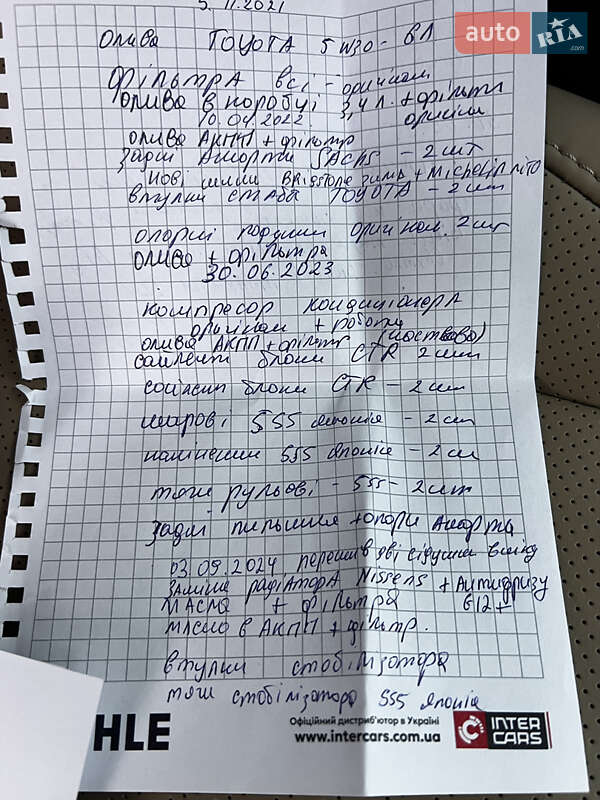 5.11.2021
auto RIA.com
олива TOYOTA 5W30 - 6Л
фільтра всі - оригінал
олива в коробці 3,4 л. + фільтр
10.04.2022 оригінал
олива АКПП + фільтр
задні Аморти SACHS - 2 шт
нові шини BRIGSTONE зима + Michelin літо
втулки стаба TOYOTA - 2 шт
опорні подушки оригінал. 2 шт
олива + фільтра
30.06.2023
компресор кондиціонера
оригінал + робота
олива АКПП + фільтр (часткова)
сайлент блоки CTR 2 шт
сайлент блоки CTR - 2 шт
шарові 555 Японія - 2 шт
наконечники 555 Японія - 2 шт
тяги рульові - 555 - 2 шт
задні пильники + опори Аморта
03.09.2024 перешив дві сідушки
заміна радіатора Nissens + Антифризу
масла + фільтра G12+
масло в АКПП + фільтр.
втулки стобілізатора
тяги стобілізатора 555 Японія
HLE
Офіційний дистриб'ютор в Україні
www.intercars.com.ua
INTER CARS